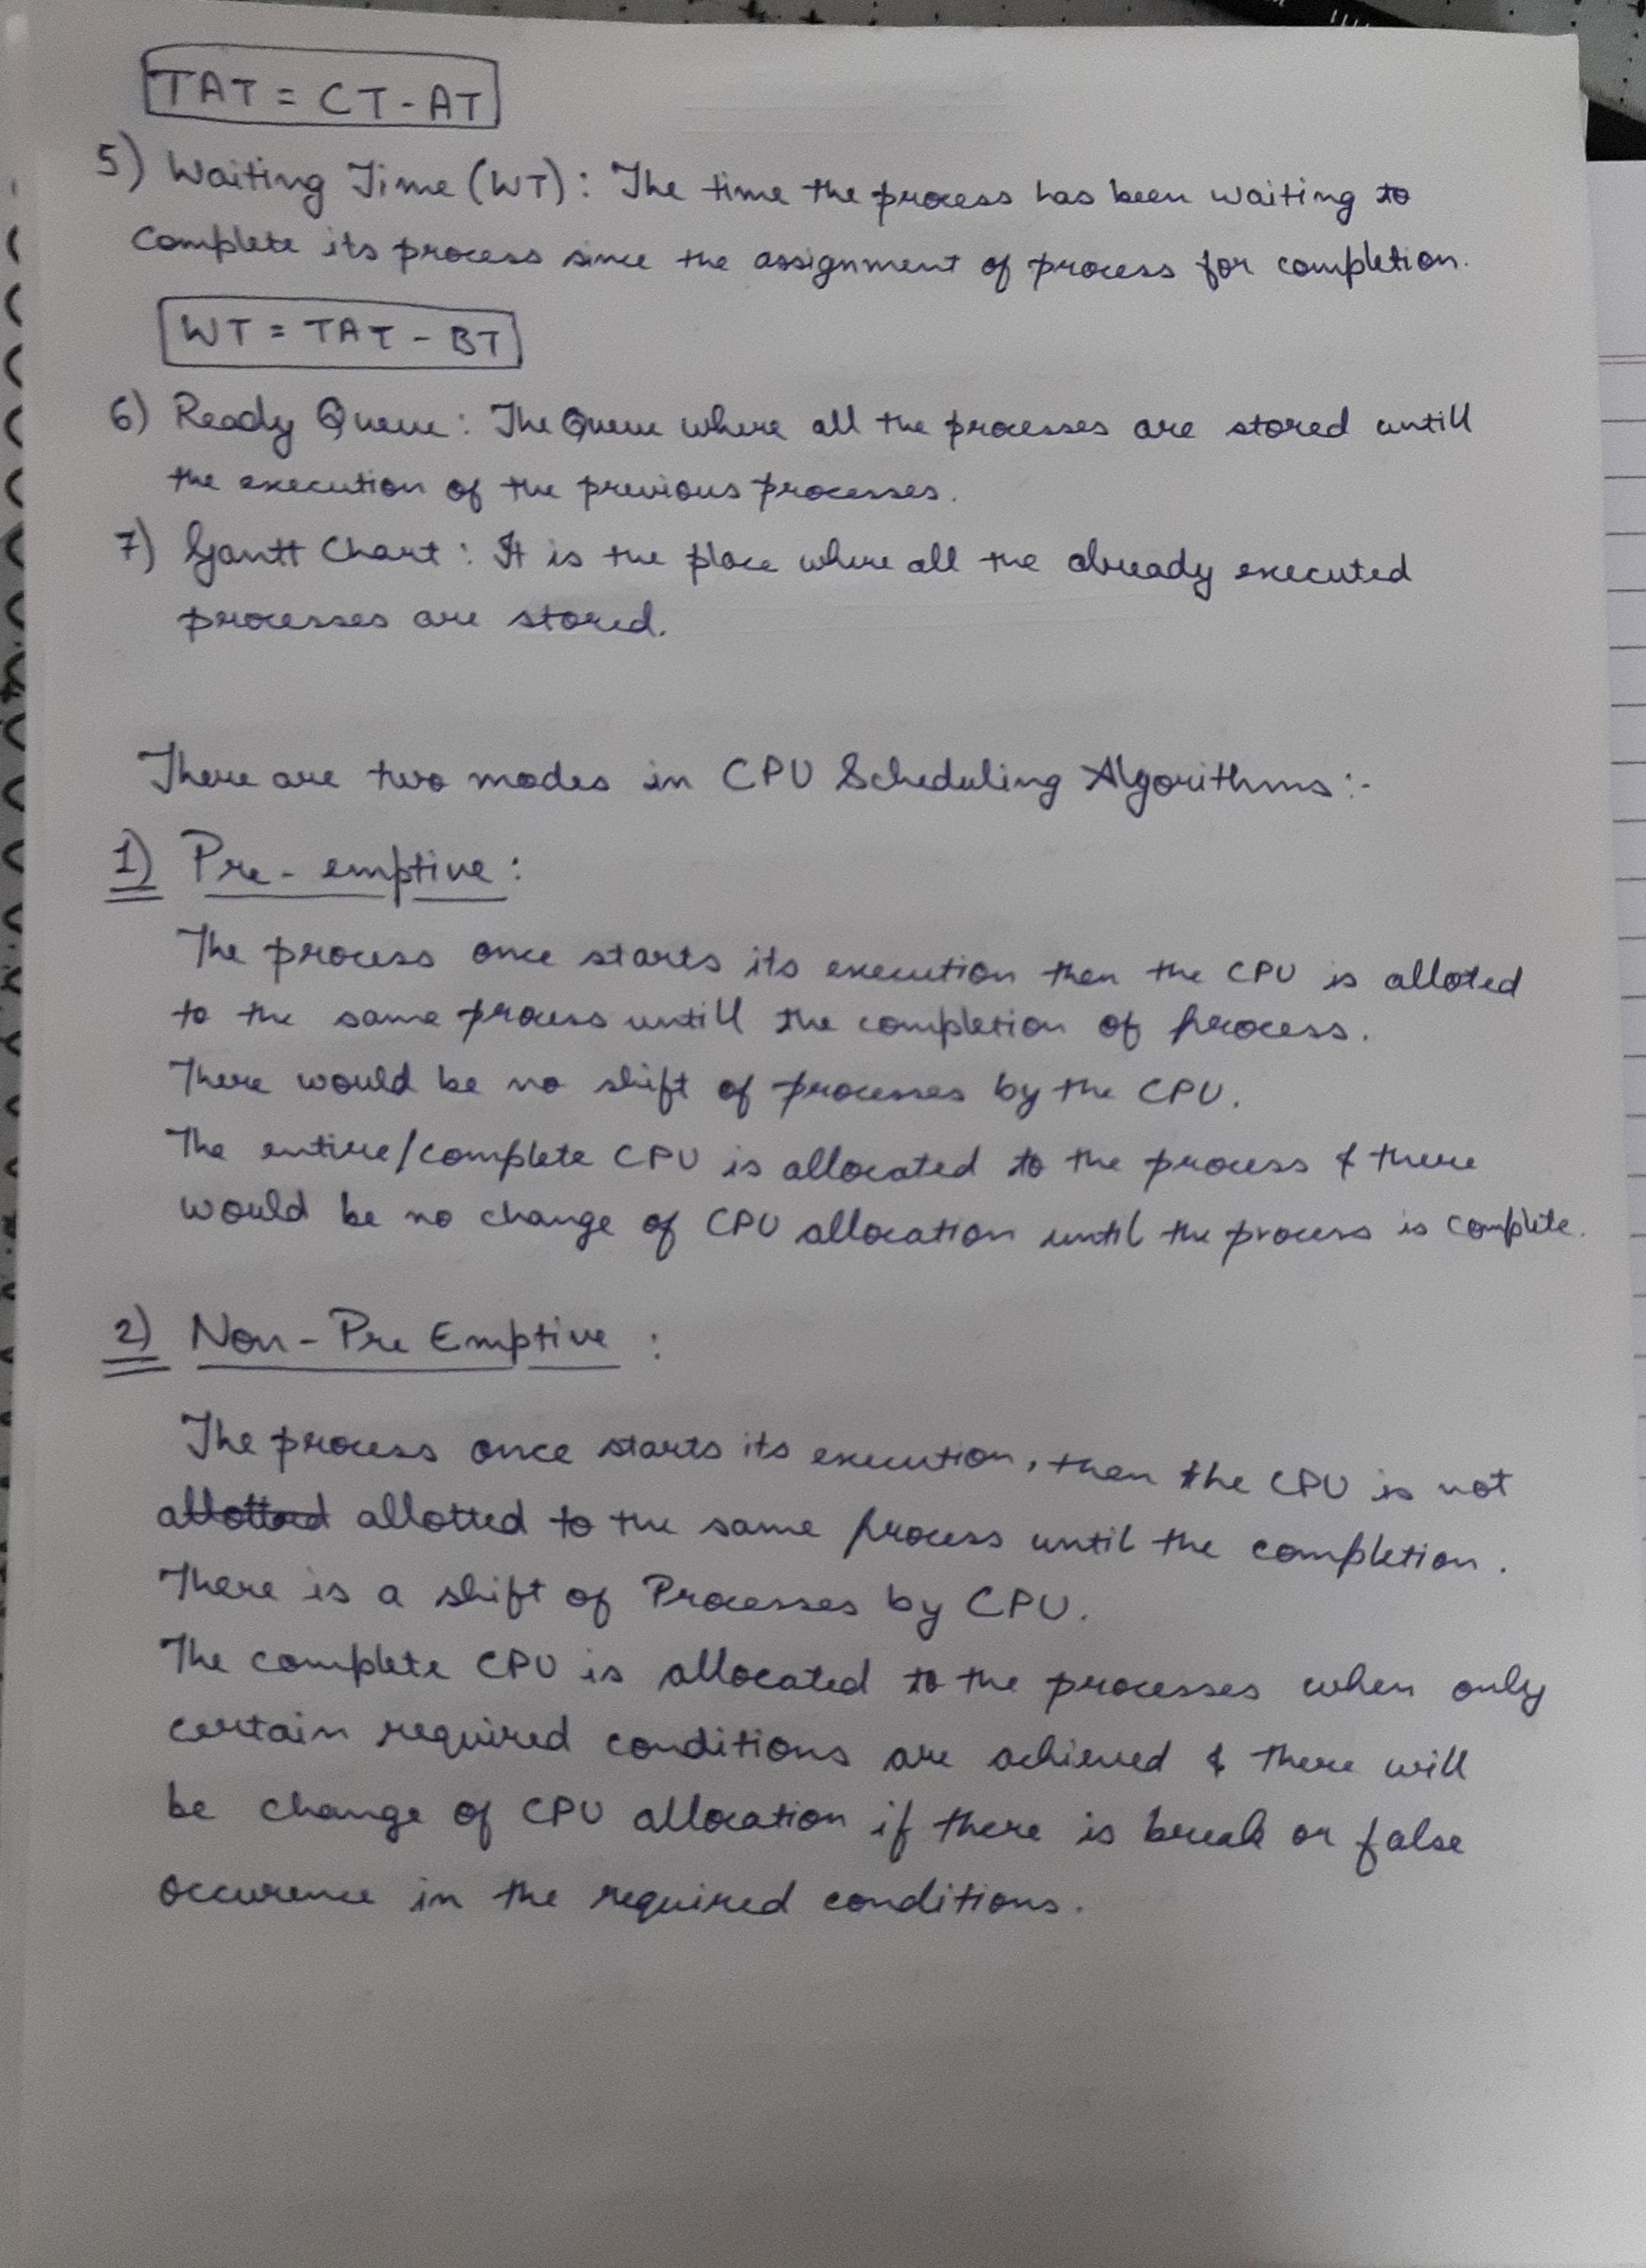 TAT = CT - AT
5) Waiting Time (WT) : The time the process has been waiting to
complete its process since the assignment of process for completion.
WT = TAT - BT
6) Ready Queue : The Queue where all the processes are stored untill
the execution of the previous processes.
7) Gantt Chart : It is the place where all the already executed
processes are stored.
There are two modes in CPU Scheduling Algorithms :-
1) Pre - emptive :
The process once starts its execution then the CPU is alloted
to the same process untill the completion of process.
There would be no shift of processes by the CPU.
The entire/complete CPU is allocated to the process & there
would be no change of CPU allocation until the process is complete.
2) Non - Pre Emptive :
The process once starts its execution, then the CPU is not
allotted to the same process until the completion.
There is a shift of Processes by CPU.
The complete CPU is allocated to the processes when only
certain required conditions are achieved & there will
be change of CPU allocation if there is break or false
occurence in the required conditions.